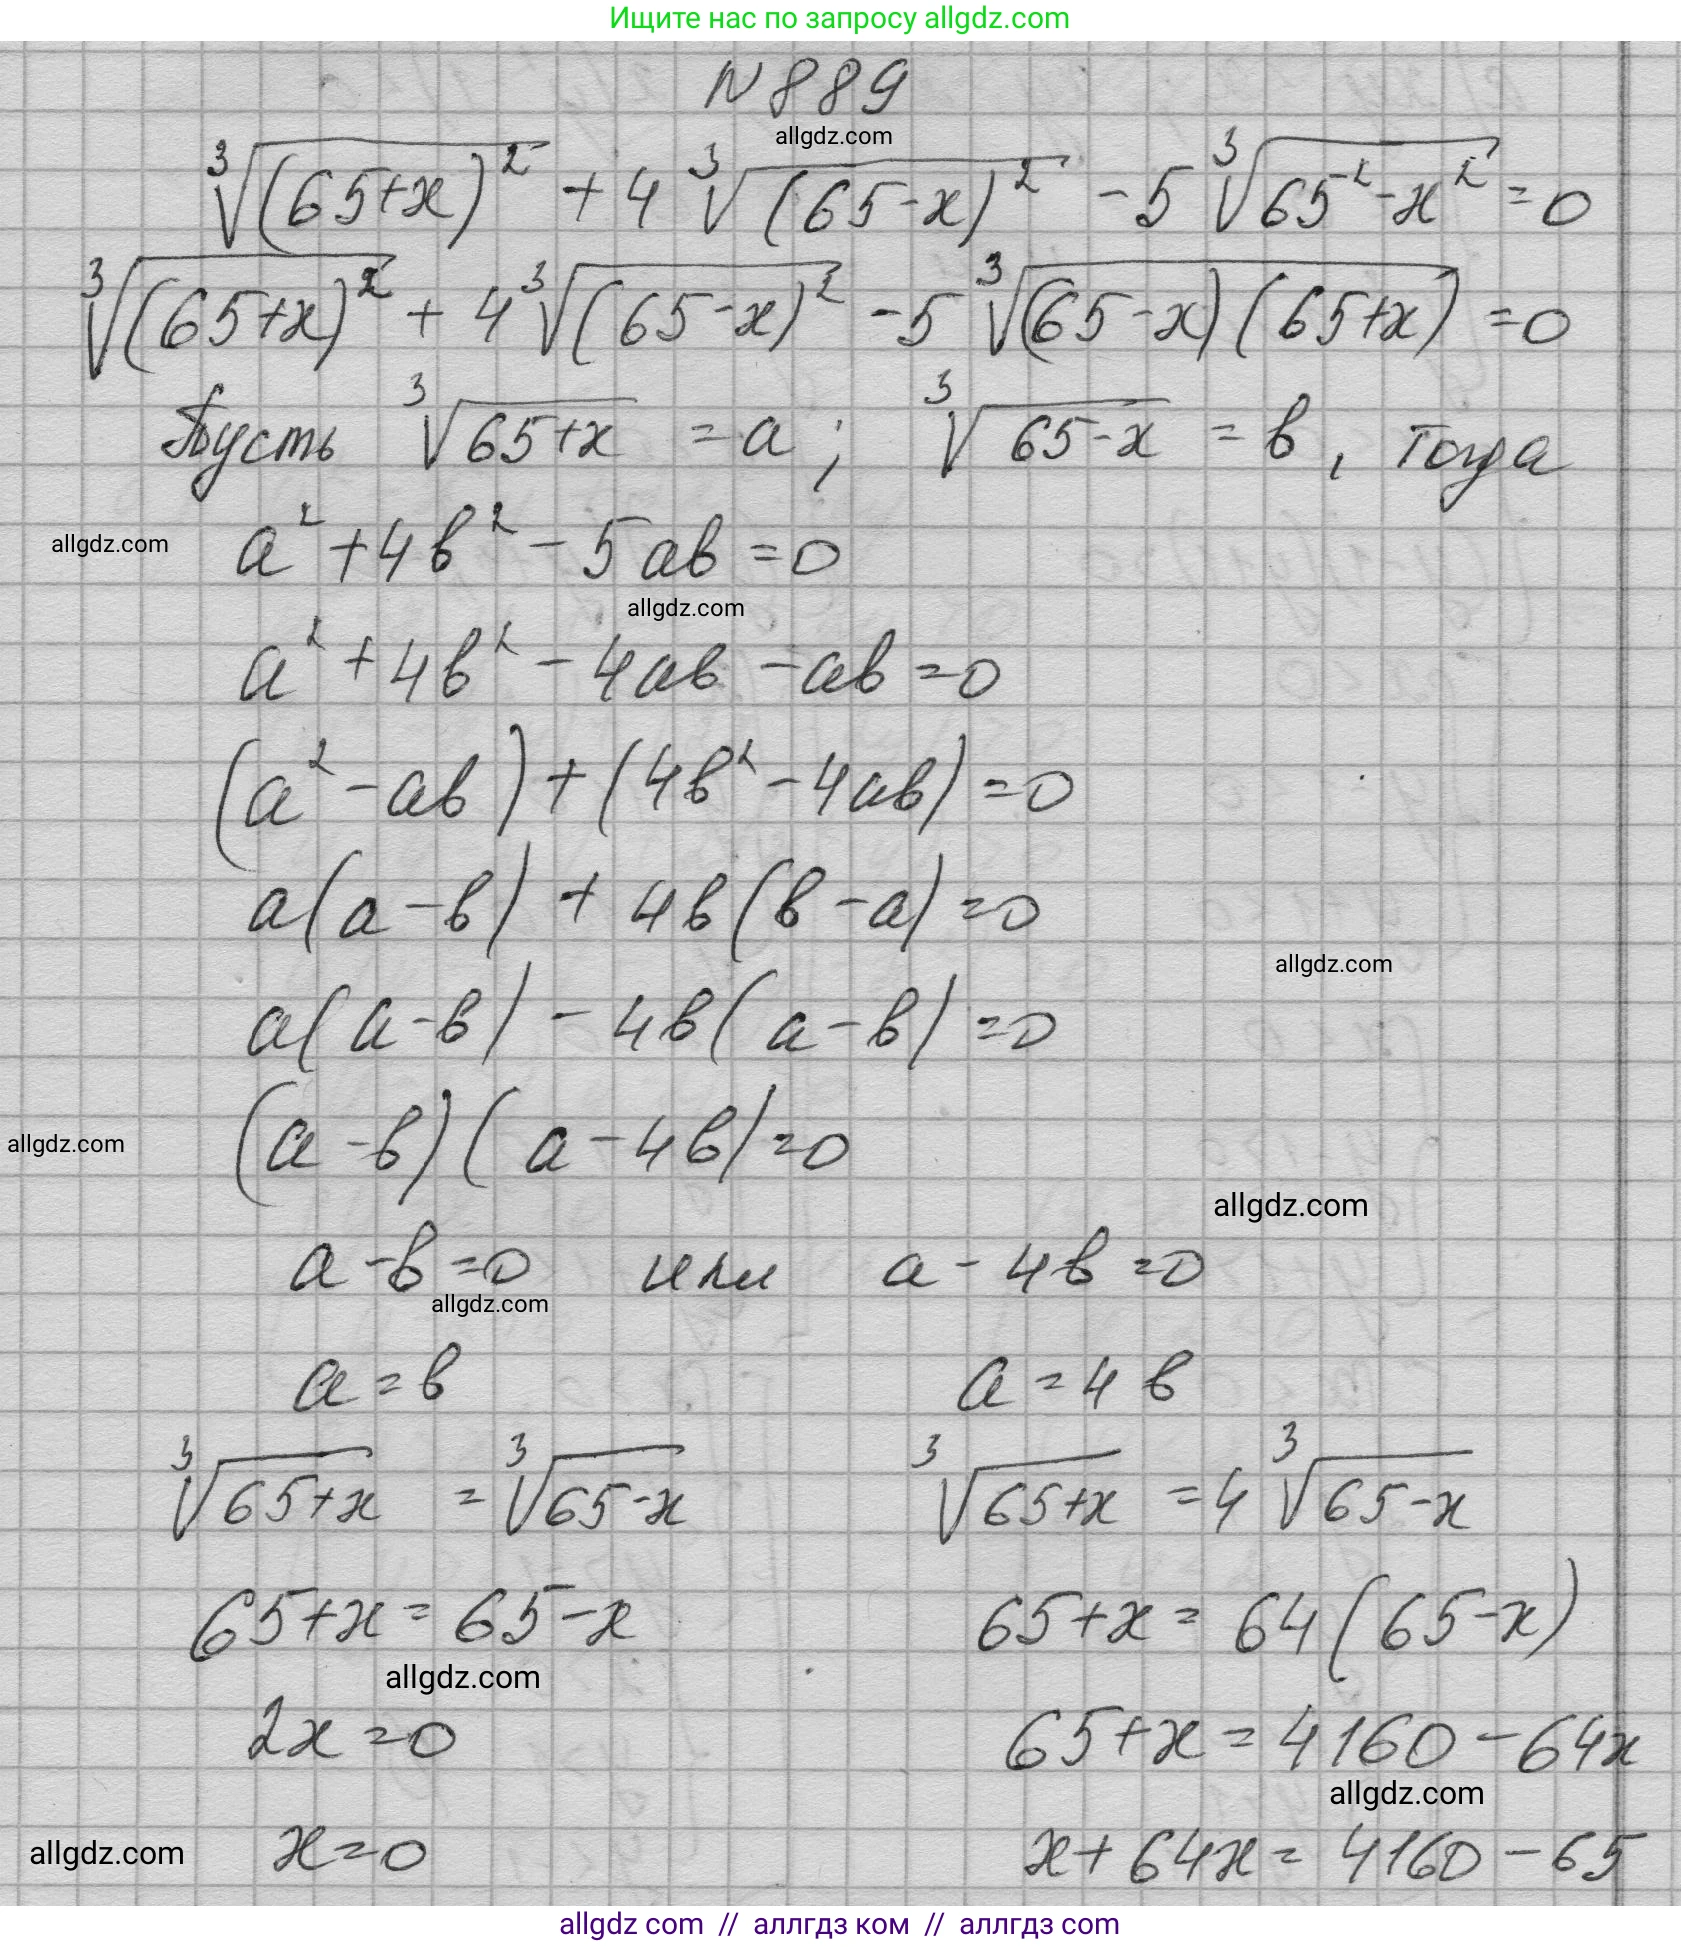 Ищите нас по запросу allgdz.com
N 889
allgdz.com
∛(65+x)² + 4∛(65-x)² - 5∛65²-x² = 0
∛(65+x)² + 4∛(65-x)² - 5∛(65-x)(65+x) = 0
Пусть ∛65+x = a; ∛65-x = b, тогда
allgdz.com a² + 4b² - 5ab = 0
allgdz.com
a² + 4b² - 4ab - ab = 0
(a² - ab) + (4b² - 4ab) = 0
a(a-b) + 4b(b-a) = 0
allgdz.com
a(a-b) - 4b(a-b) = 0
allgdz.com (a-b)(a-4b) = 0
allgdz.com
a-b=0 или a-4b=0
allgdz.com
a=b a=4b
∛65+x = ∛65-x ∛65+x = 4∛65-x
65+x = 65-x 65+x = 64(65-x)
allgdz.com
2x=0 65+x = 4160-64x
allgdz.com
allgdz.com x=0 x+64x = 4160-65
allgdz com // аллгдз ком // аллгдз com